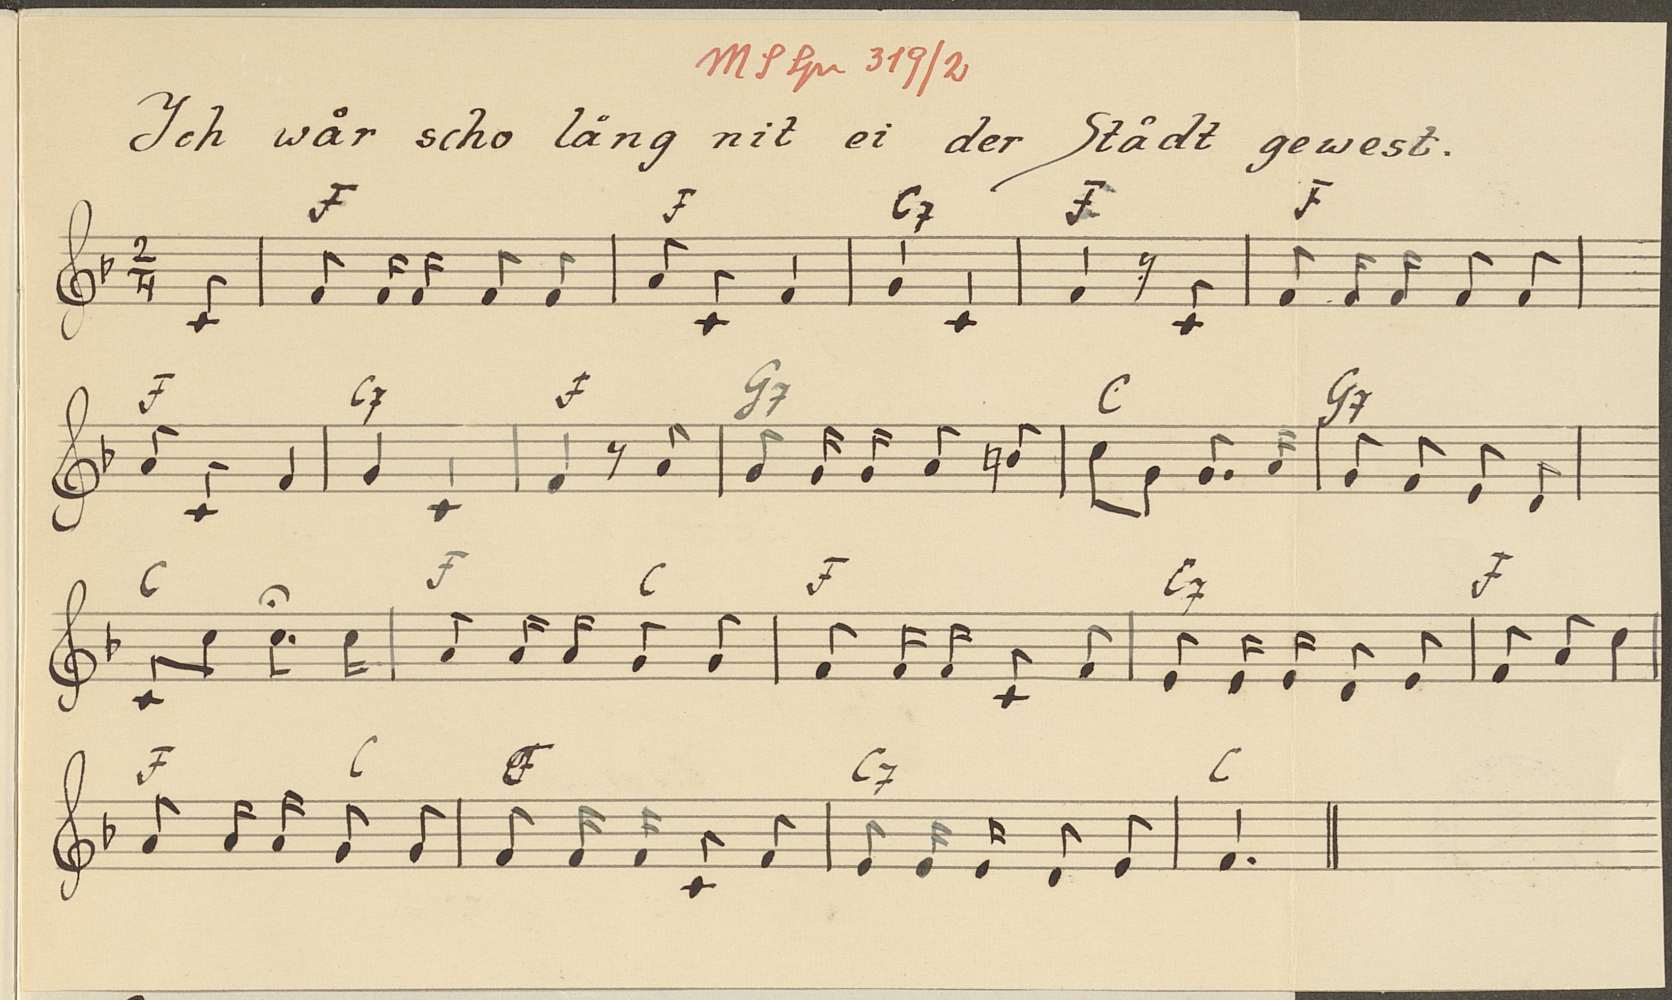 319/2
Ich wår scho lång nit ei der Stådt gewest.
F F C7 F F
2
4
F C7 F G7 C G7
C F C F C7 F
F C F C7 C